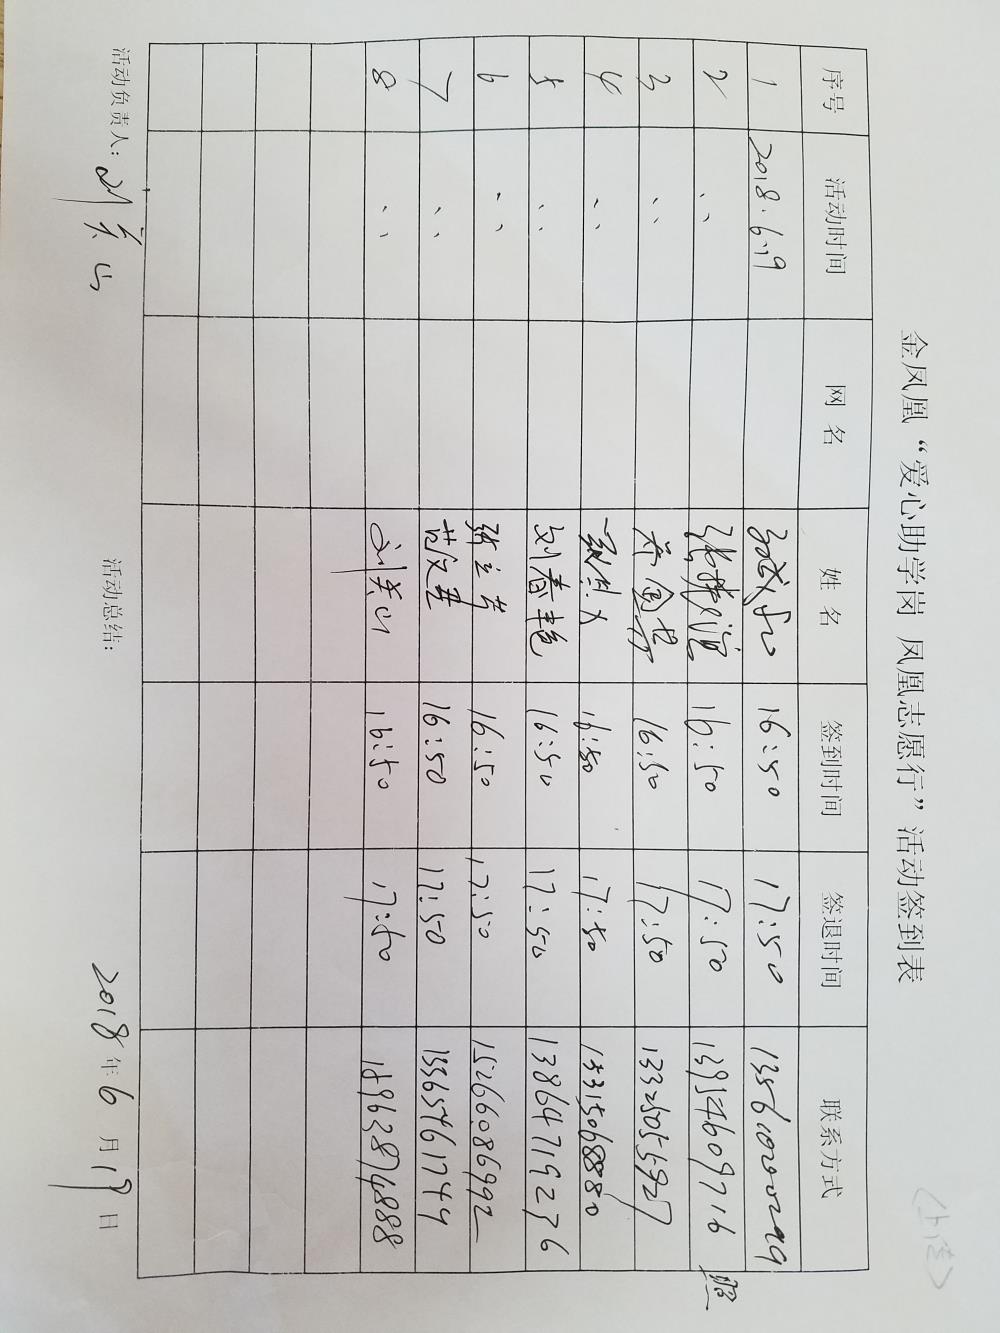 金凤凰“爱心助学岗 凤凰志愿行”活动签到表
序号 活动时间 网 名 姓 名 签到时间 签退时间 联系方式
1 2018.6.19 16:50 17:50
2 〃 16:50 17:50 13954609716
3 〃 16:50 17:50 13325055927
4 〃 16:50 17:50 13315068880
5 〃 刘春艳 16:50 17:50 13864719236
6 〃 16:50 17:50 15266086992
7 〃 16:50 17:50 13365461744
8 〃 刘关山 16:50 17:50 18963876888
活动负责人: 刘关山 活动总结: 2018年6月19日